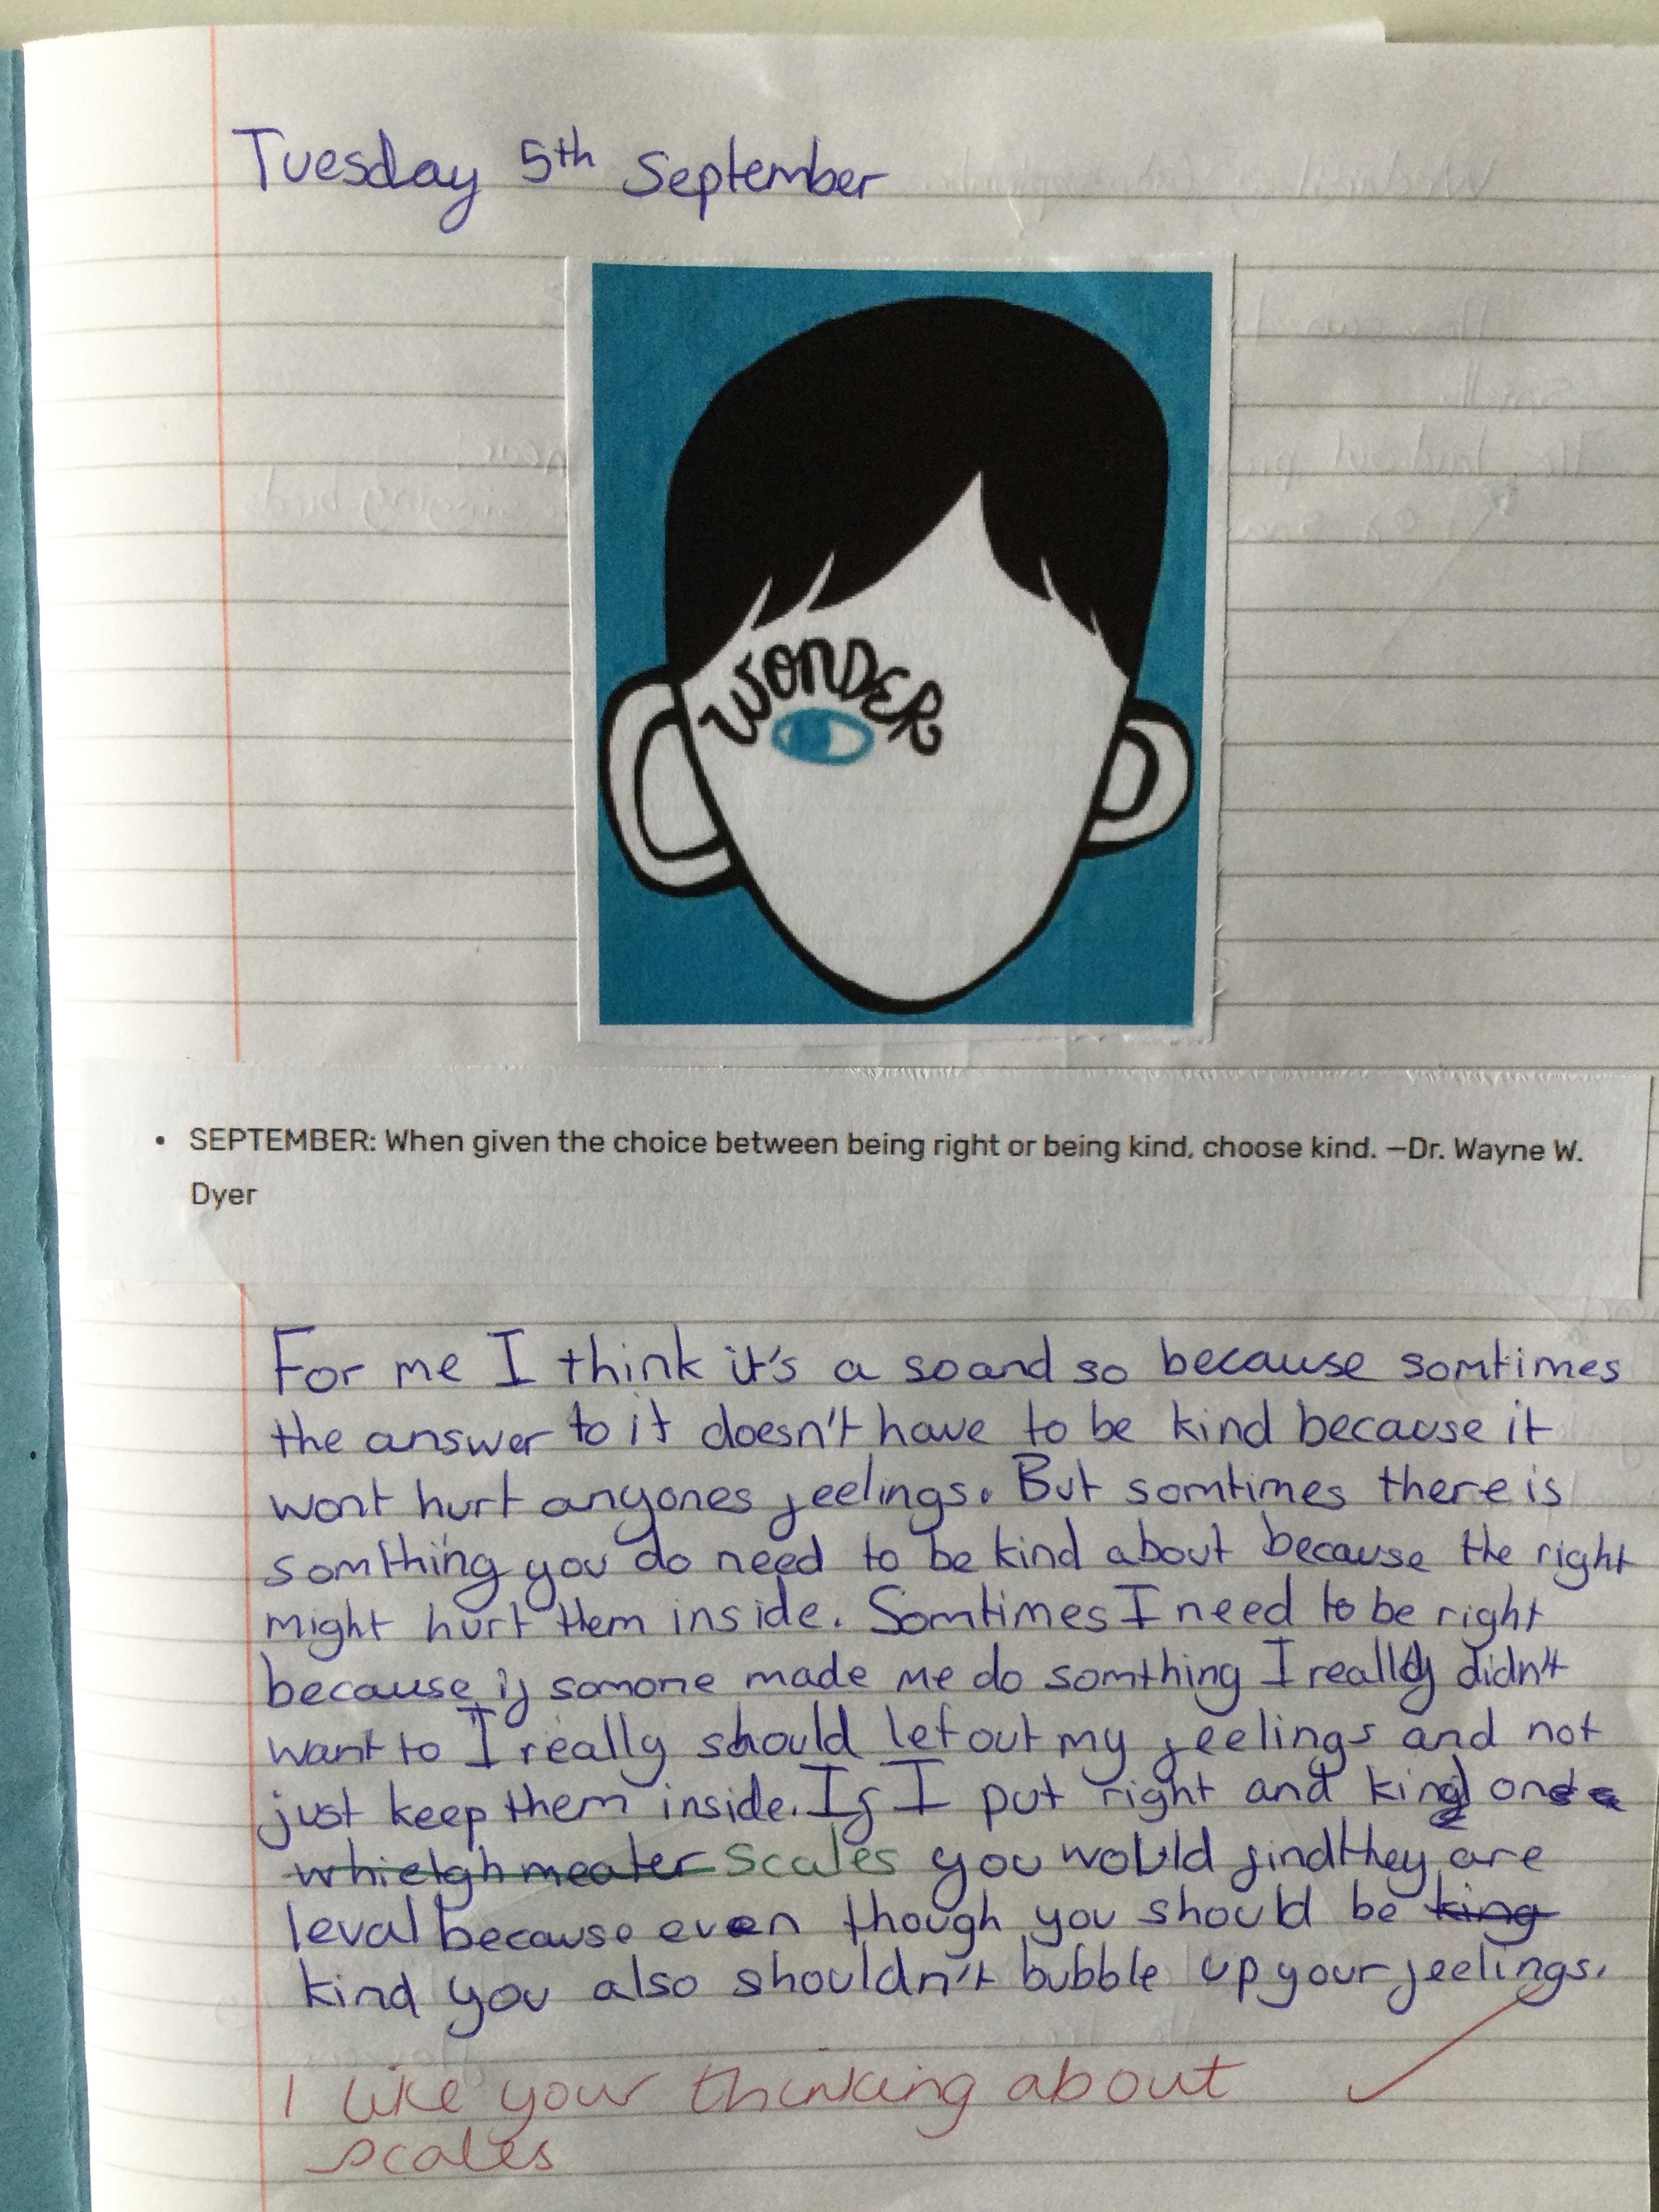 Tuesday 5th September
WONDER
• SEPTEMBER: When given the choice between being right or being kind, choose kind. —Dr. Wayne W.
Dyer
For me I think it's a so and so because somtimes
the answer to it doesn't have to be kind because it
wont hurt anyones feelings. But somtimes there is
somthing you do need to be kind about because the right
might hurt them inside. Somtimes I need to be right
because if somone made me do somthing I really didn't
want to I really should let out my feelings and not
just keep them inside. If I put right and kind on
whieigh meater scales you would find they are
leval because even though you should be king
kind you also shouldn't bubble up your feelings.
I like your thinking about
scales